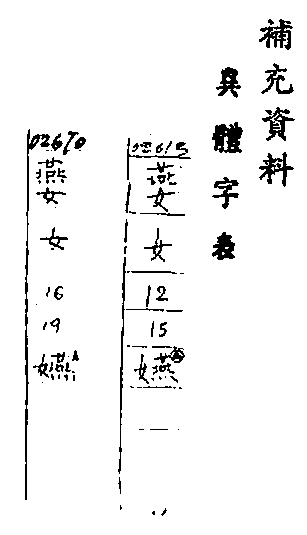 補充資料
異體字表
02615
女
12
15
嬿
02670
女
16
19
嬿